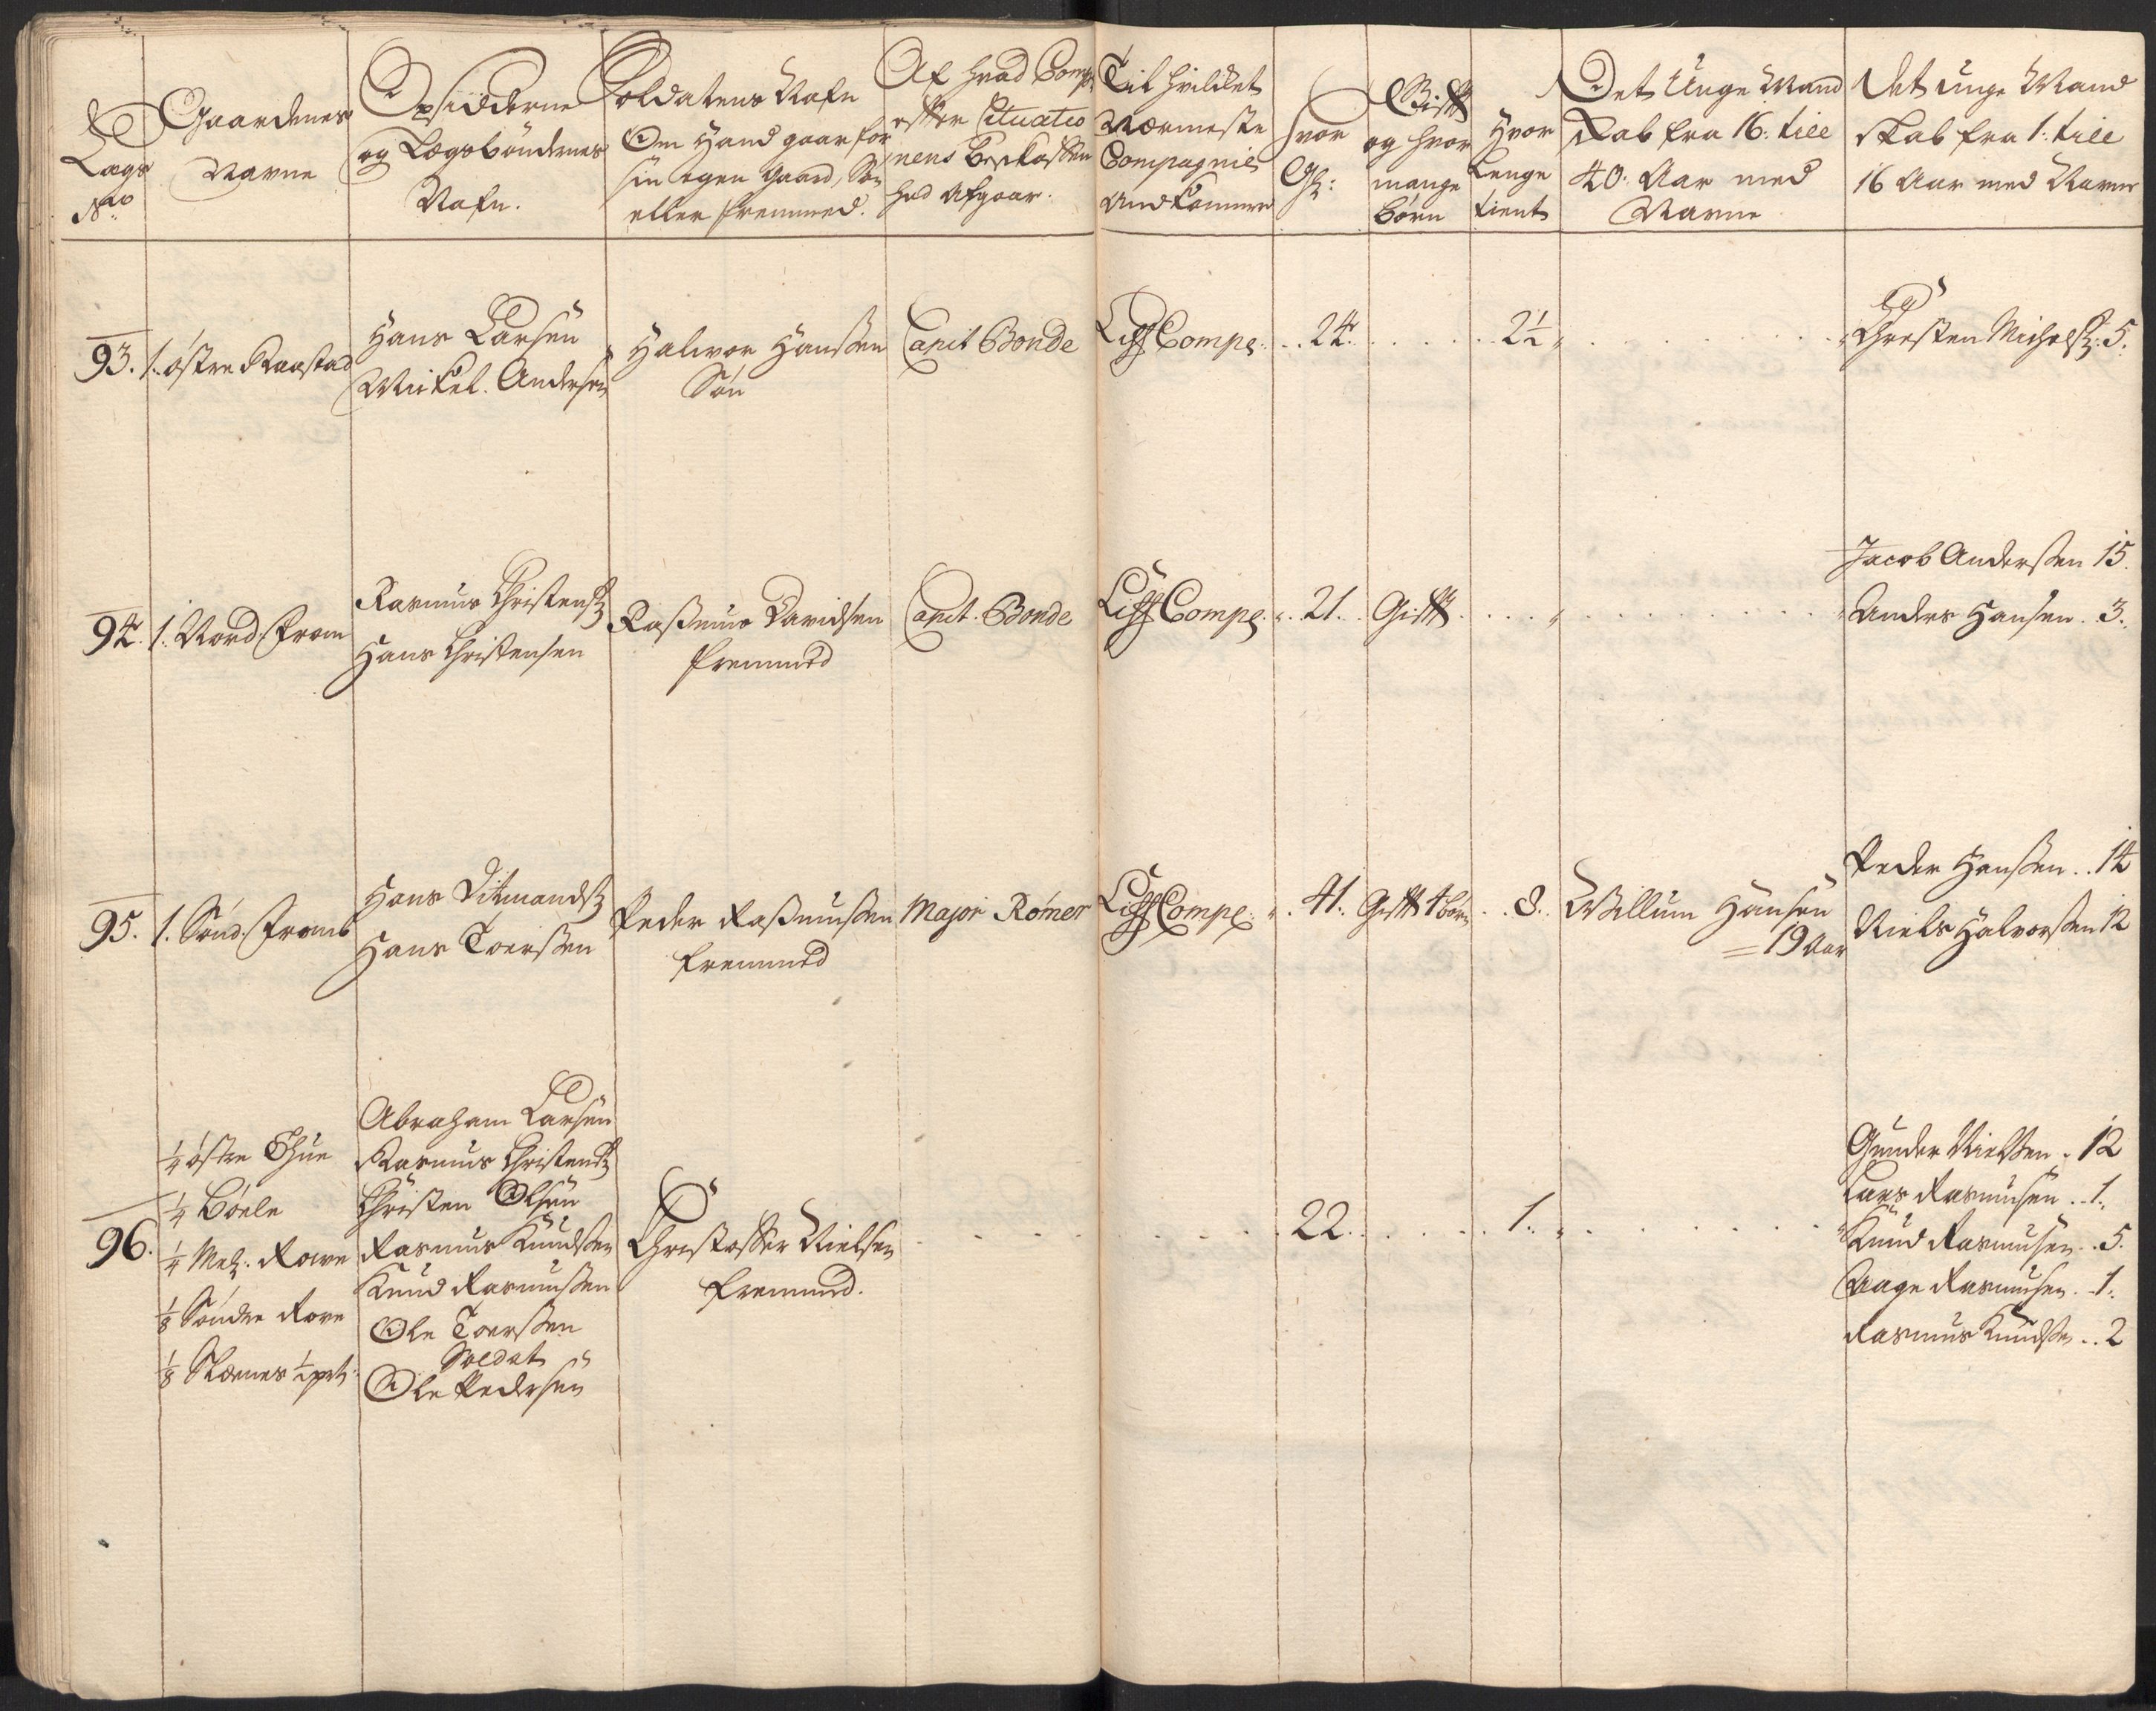 Lægs
No
Gaardenes
Navne
Opsidderne
og Lægsbøndernes
Nafn.
Soldatens Nafn
Om Hand gaar for
sin egen Gaard, Søn
eller fremmed.
Af hvad Comp:
efter Situatio
nens Beskaffen
hed afgaar.
Til hvilcket
Nærmeste
Compagnie
And kommer
hvor
Gl:
Gift
og hvor
mange
børn
Hvor
Lenge
tient
Det Unge Mand
skab fra 16. till
40. Aar med
Navne
Det unge Mand
skab fra 1. till
16 Aar med Navne
93. 1. østre Raastad
Hans Larsen
Mickel Andersen
Halvor Hanssen
Søn
Capit Bonde
Liff Comp:
24.
2½
Christen Michelss: 5.
94. 1. Nord: From
Rasmus Christens
Hans Christensen
Rassmus Davidsen
fremmed
Capit. Bonde
Liff Comp:
21.
Gift
Jacob Anderssen 15.
Anders Hansen. 3.
95. 1. Sønd: From
Hans Ditmands
Hans Toerssen
Peder Rassmussen
fremmed
Major Rømer
Liff Comp:
41.
Gift 4 børn
8.
Willum Hansen
19 Aar
Peder Hanssen. . 14
Niels Halvorssen 12
96.
¼ østre
¼ Bøele
¼ Rowe
⅛ Søndre Rove
⅛
Abraham Larsen
Rasmus Christens
Christen Olsen
Rasmus Knudssen
Knud Rasmussen
Ole Toerssen
Soldat
Ole Pedersen
Christoffer Nielsen
fremmed.
22.
1.
Gunder Nielssen. 12
Lars Rasmusen. . 1.
Knud Rasmusen. . 5.
Aage Rasmusen. . 1.
Rasmus Knudssen. . 2